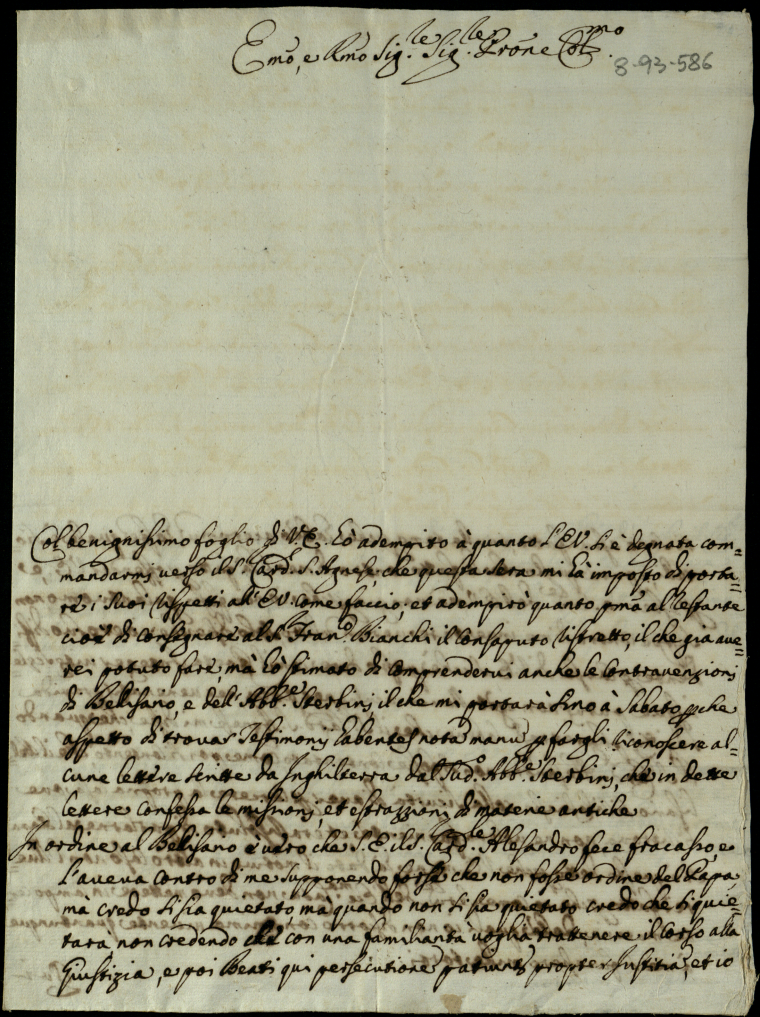 Emo, e Rmo Sig.re Sig.re Prone Col.mo
8-93-586
Col benignissimo foglio di V.E. hò adempito à quanto L'EV. si è degnata com=
mandarmi verso il S. Card. S. Agnese, che questa sera mi hà imposto di porta=
re i suoi rispetti all'EV. come faccio, et adempirò quanto pma al restante
cioè di consegnare al S. Fran.o Bianchi il consaputo ristretto, il che gia ave=
rei potuto fare, mà hò stimato di comprendervi anche le contravenzioni
di Belisario, e dell'Abb.e Sterbini il che mi portarà sino à Sabato pche
aspetto di trovar Testimonij habentes nota manu p fargli riconoscere al=
cune lettere scritte da Inghilterra dal Sud.o Abb.e Sterbini, che in dette
lettere confessa le missioni, et estrazzioni di materie antiche
In ordine al Belisario è vero che S.E. il S. Card.le Alesandro fece fracasso, e
l'aveva contro di me supponendo forse che non fosse ordine del Papa,
mà credo si sia quietato, mà quando non si sia quietato credo che si quie=
tarà non credendo che con una familiarità voglia trattenere il corso alla
Giustizia, e poi Beati qui persecutione patiunt propter Iustitia, et io